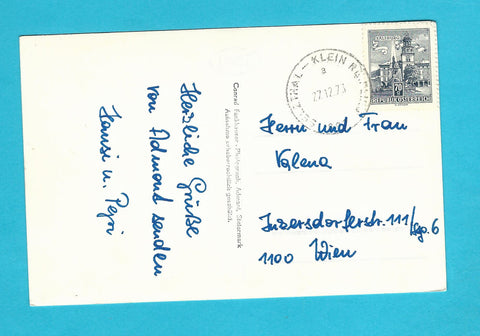 Herzliche Grüße
von Admond senden
Hansi u. Pepi
Conrad Fankhauser - Photograph, Admont, Steiermark
Aufnahme urheberrechtlich geschützt.
KLEIN
27.12.73
SALZBURG
70
REPUBLIK ÖSTERREICH
Herrn und Frau
Valena
Inzersdorferstr. 111/
6
1100 Wien